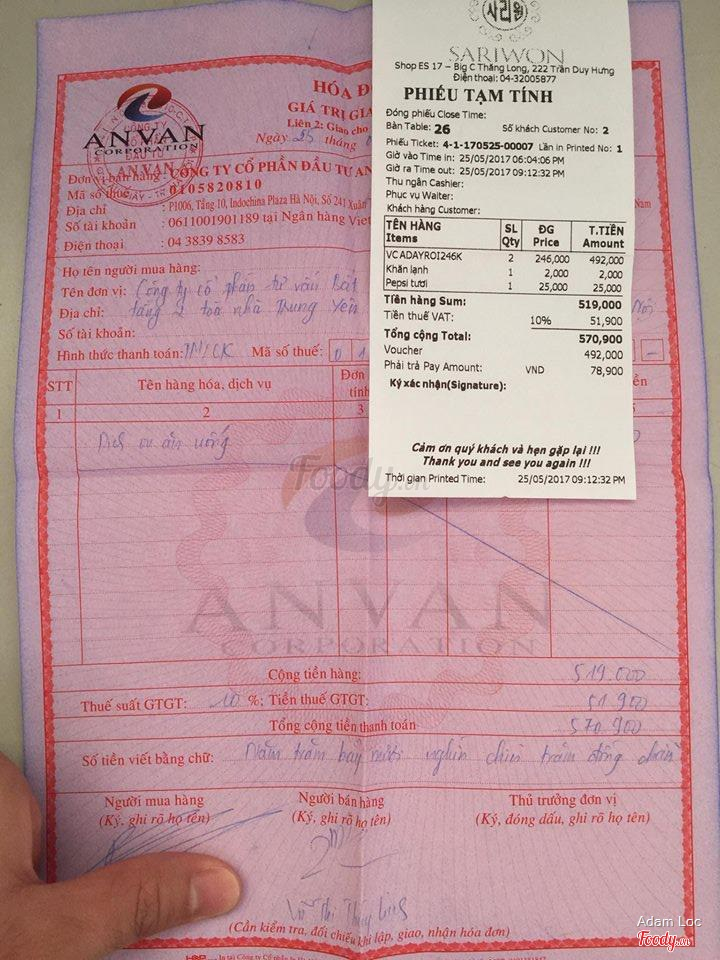 사리원
SARIWON
Shop ES 17 – Big C Thăng Long, 222 Trần Duy Hưng
Điện thoại: 04-32005877
PHIẾU TẠM TÍNH
Đóng phiếu Close Time:
Bàn Table: 26 Số khách Customer No: 2
Phiếu Ticket: 4-1-170525-00007 Lần in Printed No: 1
Giờ vào Time in: 25/05/2017 06:04:06 PM
Giờ ra Time out: 25/05/2017 09:12:32 PM
Thu ngân Cashier:
Phục vụ Waiter:
Khách hàng Customer:
TÊN HÀNG SL ĐG T.TIỀN
Items Qty Price Amount
VCADAYROI246K 2 246,000 492,000
Khăn lạnh 1 2,000 2,000
Pepsi tươi 1 25,000 25,000
Tiền hàng Sum: 519,000
Tiền thuế VAT: 10% 51,900
Tổng cộng Total: 570,900
Voucher 492,000
Phải trả Pay Amount: VND 78,900
Ký xác nhận(Signature):
Cảm ơn quý khách và hẹn gặp lại !!!
Thank you and see you again !!!
Thời gian Printed Time: 25/05/2017 09:12:32 PM
HÓA Đ
GIÁ TRỊ GIA
Liên 2: Giao cho
Ngày 25 tháng
ANVAN
CORPORATION
Đơn vị bán hàng : CÔNG TY CỔ PHẦN ĐẦU TƯ AN
Mã số thuế : 0105820810
Địa chỉ : P1006, Tầng 10, Indochina Plaza Hà Nội, Số 241 Xuân
Nam
Số tài khoản : 0611001901189 tại Ngân hàng Viet
Điện thoại : 04 3839 8583
Họ tên người mua hàng:
Tên đơn vị: Công ty cổ phần tư vấn Bất
Địa chỉ: tầng 2 toà nhà Trung Yên
Nội
Số tài khoản:
Hình thức thanh toán: TM/CK Mã số thuế: 0 1
STT Tên hàng hóa, dịch vụ Đơn tính
1 2 3
Dịch vụ ăn uống
Foody.vn
ANVAN
CORPORATION
Cộng tiền hàng: 519.000
Thuế suất GTGT: 10 %; Tiền thuế GTGT: 51.900
Tổng cộng tiền thanh toán 570.900
Số tiền viết bằng chữ: Năm trăm bảy mươi nghìn chín trăm đồng chẵn
Người mua hàng Người bán hàng Thủ trưởng đơn vị
(Ký, ghi rõ họ tên) (Ký, ghi rõ họ tên) (Ký, đóng dấu, ghi rõ họ tên)
Vũ Thị Thùy Linh
(Cần kiểm tra, đối chiếu khi lập, giao, nhận hóa đơn)
Adam Loc
Foody.vn